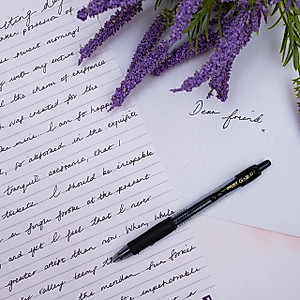 possession of
sweet mornings
with my entire
the charm of existence
was created for the
mine. I am so happy
, so absorbed in the exquisite
tranquil existence, that I
talents. I should be incapable
a single stroke at the present
and yet I feel that I never
greater artist than now. When, while
valley teems
the meridian sun strikes
the impenetrable
Dear friend,
PILOT G-2 07